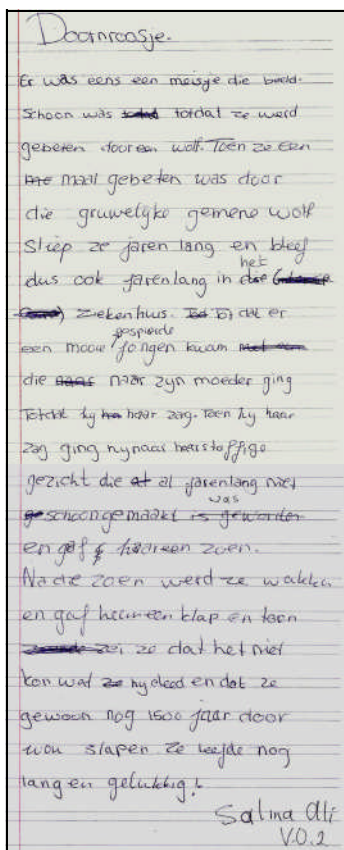 Doornroosje.
Er was eens een meisje die beeld-
schoon was totdat ze werd
gebeten door een wolf. Toen ze een
maal gebeten was door
die gruwelyke gemene wolf
sliep ze jaren lang en bleef
dus ook jarenlang in het
ziekenhuis. Tot dat er
een mooie gespierde jongen kwam
die naar zyn moeder ging
Totdat hy haar zag. Toen hy haar
zag ging hy naar haar stoffige
gezicht die al jarenlang niet
schoongemaakt was
en gaf haar een zoen.
Na die zoen werd ze wakker
en gaf hem een klap en toen
zei ze dat het niet
kon wat hy deed en dat ze
gewoon nog 1500 jaar door
wou slapen Ze leefde nog
lang en gelukkig!
Salina Ali
V.O.2